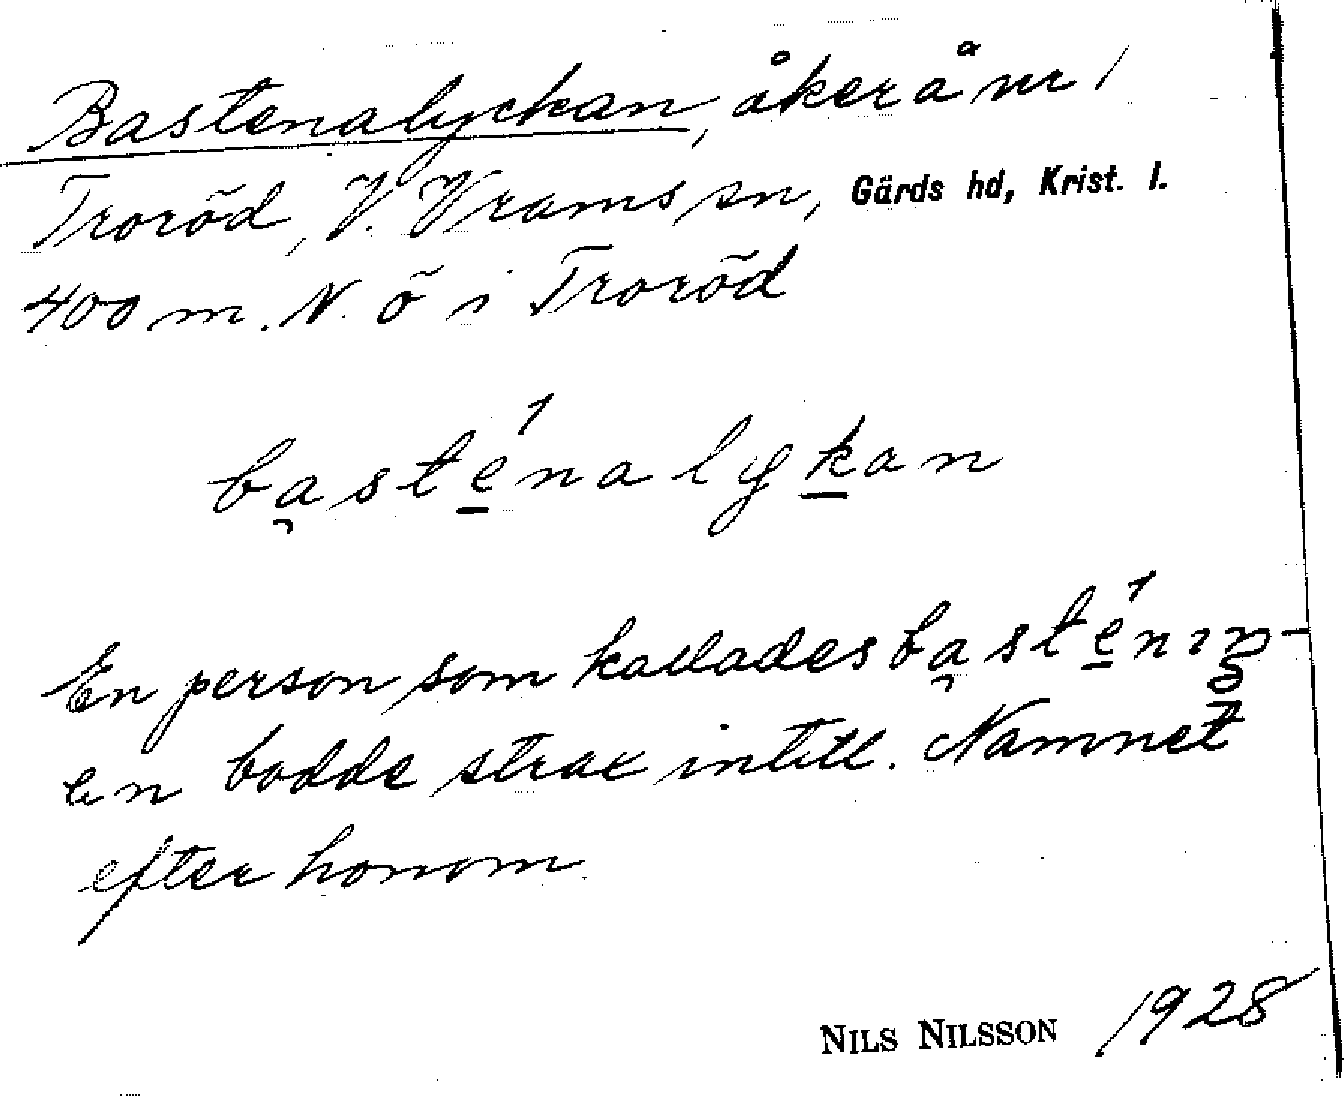 Bastenalyckan, åker å nr 1
Troröd, V. Vrams sn, Gärds hd, Krist. l.
400 m. N. ö i Troröd
basténalykan
En person som kallades basténıŋ-
en bodde strax intill. Namnet
efter honom
NILS NILSSON 1928